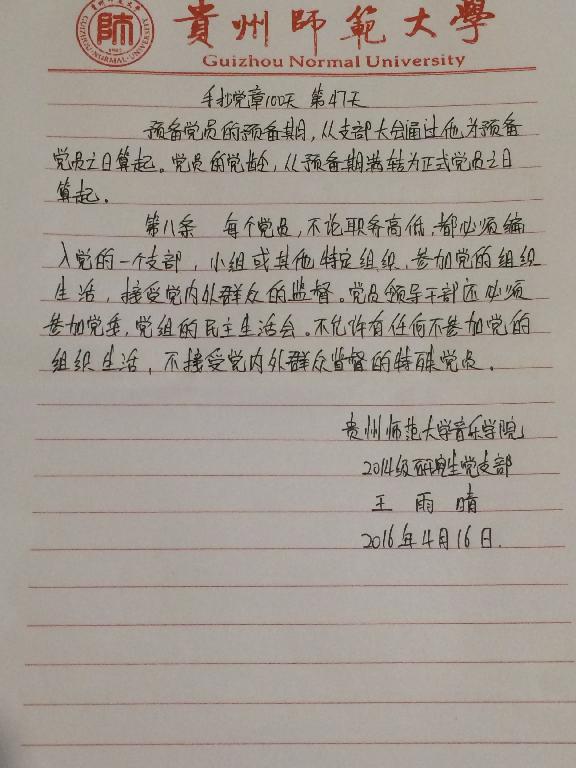 貴州師範大學
GUIZHOU NORMAL UNIVERSITY
師
1941
Guizhou Normal University
手抄党章100天 第47天
预备党员的预备期，从支部大会通过他为预备
党员之日算起。党员的党龄，从预备期满转为正式党员之日
算起。
第八条 每个党员，不论职务高低，都必须编
入党的一个支部，小组或其他特定组织，参加党的组织
生活，接受党内外群众的监督。党员领导干部还必须
参加党委，党组的民主生活会。不允许有任何不参加党的
组织生活，不接受党内外群众监督的特殊党员。
贵州师范大学音乐学院
2014级研究生党支部
王雨晴
2016年4月16日.